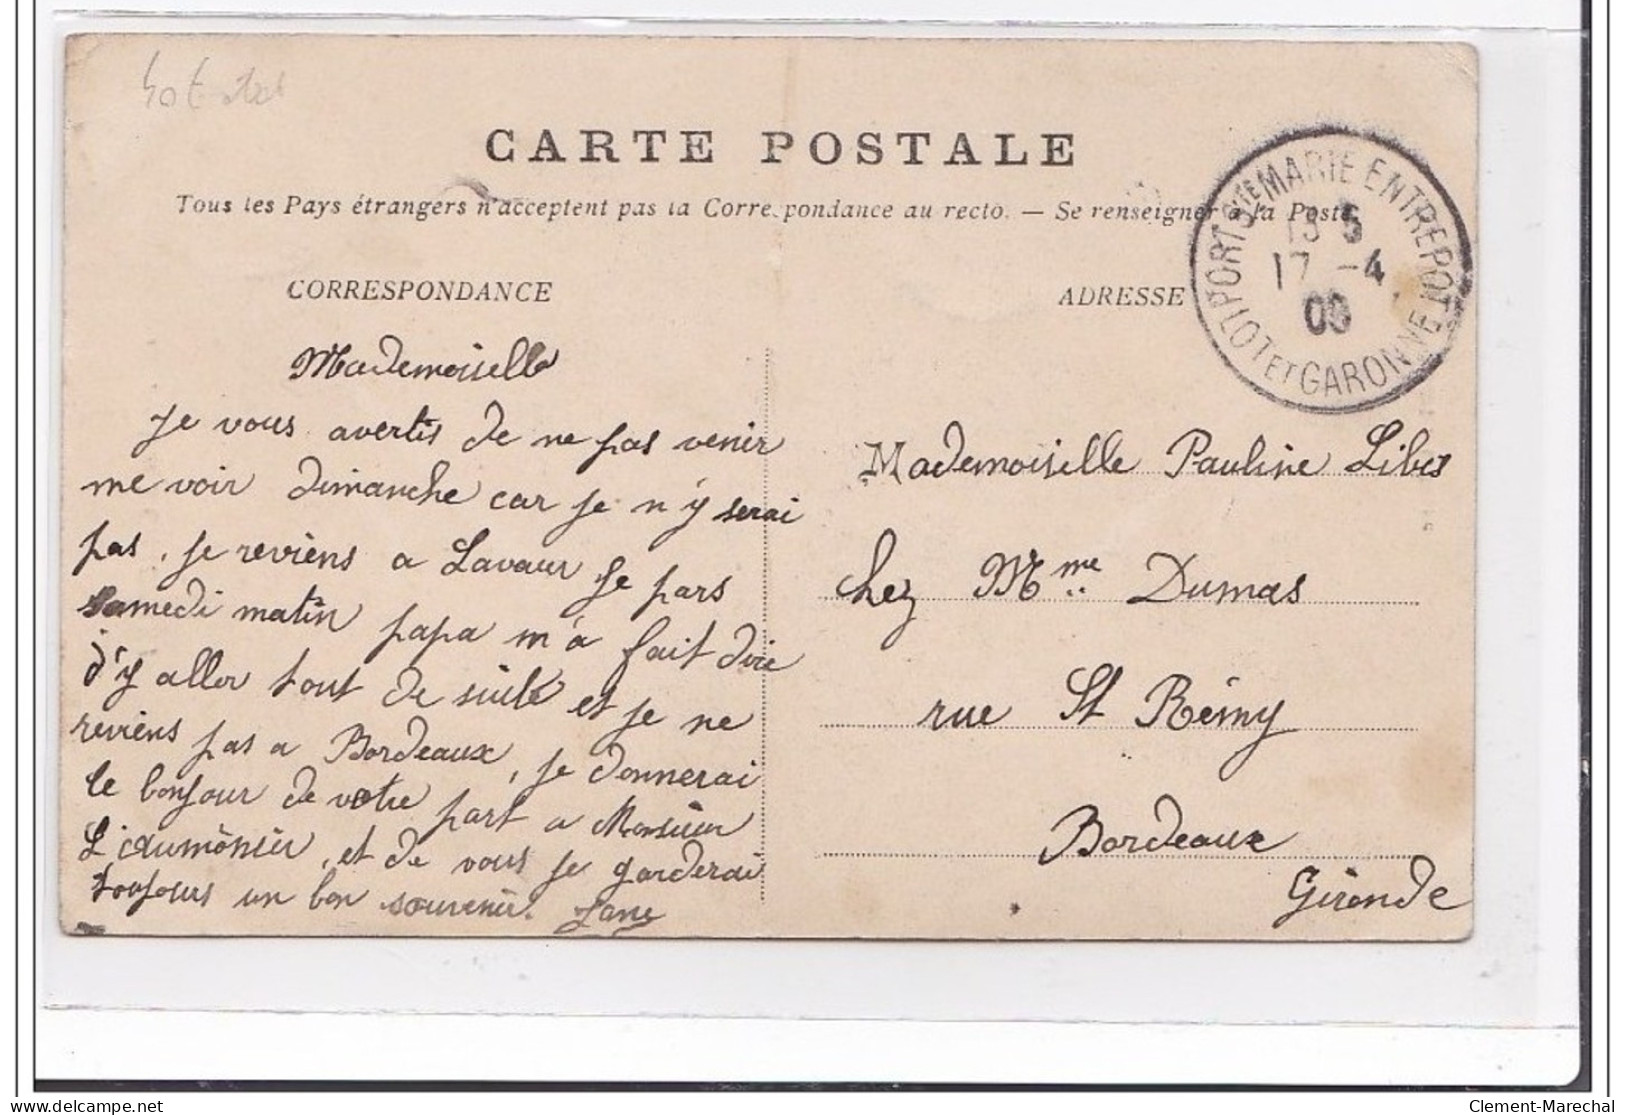 CARTE POSTALE
Tous les Pays étrangers n'acceptent pas la Correspondance au recto. — Se renseigner à la Poste.
PORT STE MARIE ENTREPOT
LOT ET GARONNE
17 -4
CORRESPONDANCE
Mademoiselle
Je vous avertis de ne pas venir
me voir dimanche car je n'y serai
pas, je reviens a Lavaur je pars
samedi matin papa m'a fait dire
d'y aller tout de suite et je ne
reviens pas a Bordeaux, je donnerai
le bonjour de votre part a Monsieur
L'aumônier, et de vous je garderai
toujours un bon souvenir.
ADRESSE
Mademoiselle Pauline Libes
chez Mme Dumas
rue St Rémy
Bordeaux
Gironde
delcampe.net
Clement-Marechal